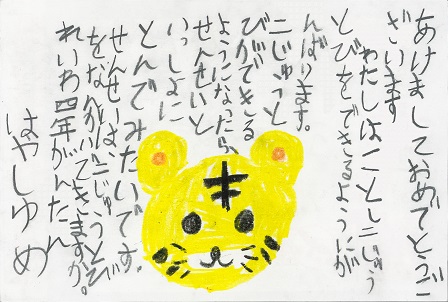 あけましておめでとうご
ざいます
わたしはことし二じゅう
とびをできるようにが
んばります。
二じゅうと
びができる
ようになったら、
せんせいと
いっしょに
とんでみたいです。
せんせいは二じゅうとび
をなんかいできますか。
れいわ四年がんたん
はやしゆめ